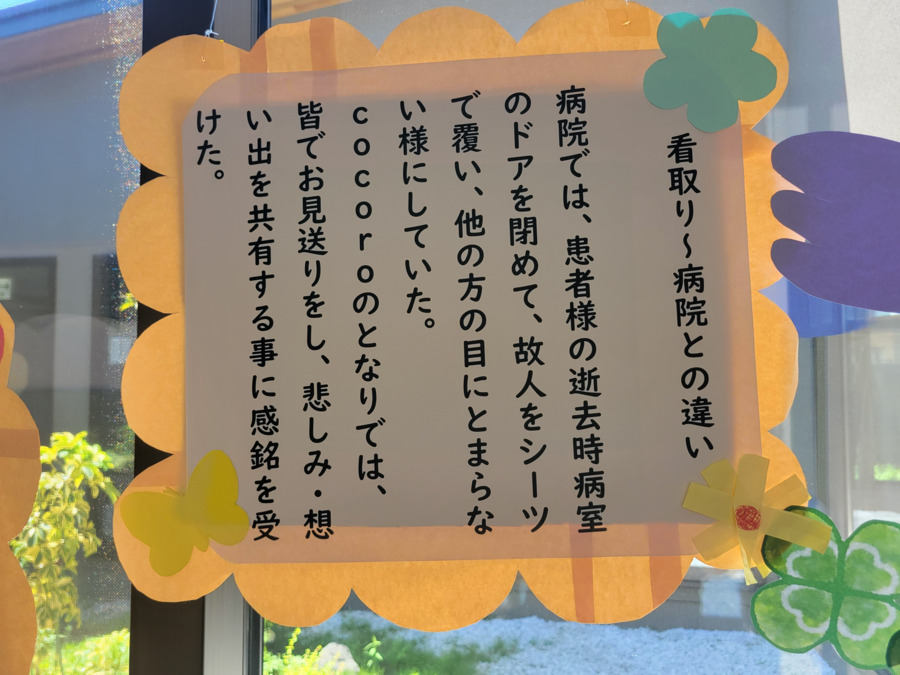 看取り～病院との違い
病院では、患者様の逝去時病室
のドアを閉めて、故人をシーツ
で覆い、他の方の目にとまらな
い様にしていた。
ｃｏｃｏｒｏのとなりでは、
皆でお見送りをし、悲しみ・想
い出を共有する事に感銘を受
けた。